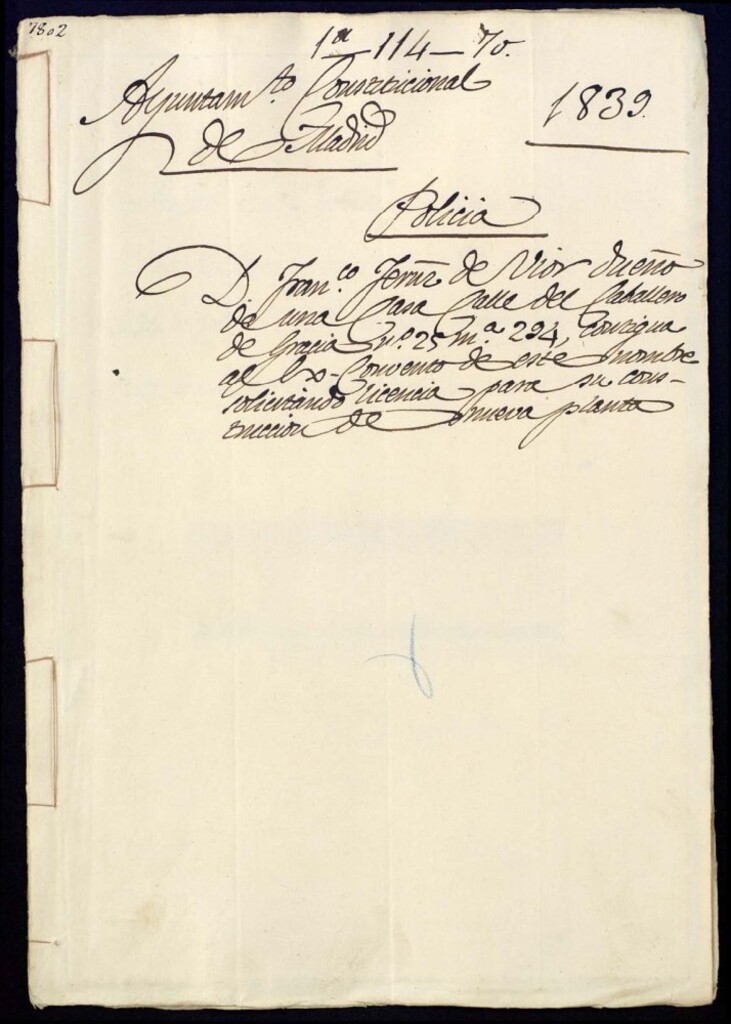 7802
1ª-114-70.
Ayuntam.to Constitucional
de Madrid
1839.
Policia
D. Fran.co Fernz de Vior dueño
de una Casa Calle del Caballero
de Gracia n.º 25 m.ª 294, Contigua
al Ex-Convento de este nombre
solicitando licencia para su cons-
truccion de nueva planta